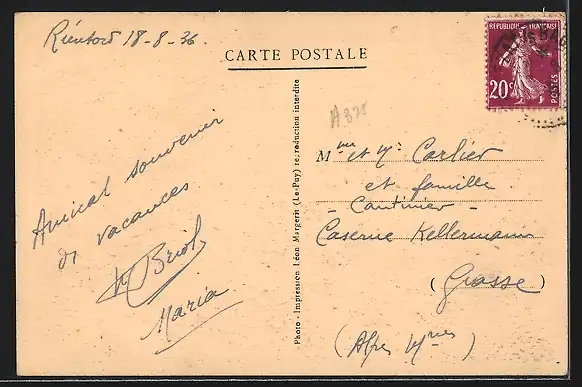 18-8-36.
CARTE POSTALE
RÉPUBLIQUE FRANÇAISE
20c
POSTES
A 375
Amical souvenir
de vacances
Briol
Maria
Photo - Impression Léon Margerit (Le-Puy) reproduction interdite
Mme et Mr Carlier
et famille
- Cantinier -
Caserne Kellermann
(Grasse)
(Alpes Mmes)